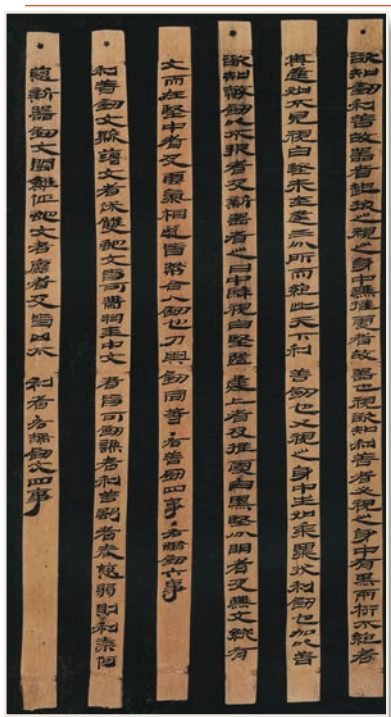 欲知劍利善故器者起拔之視之身中無推處者故器也視欲知利善者必視之身中有黑兩桁不絕者
其逢如不見視白堅未至逢三分所而絕此天下利善劍也又視之身中生如黍粟狀利劍也加以善
欲知幣劍以不報者及新器者之日中騂視白堅隨逢上者及推處白黑堅分明者及無文縱有
文而在堅中者及雲氣相遂皆幣合人劍也刀與劍同等·右善劍四事·右幣劍六事
利善劍文縣薄文者保雙蛇文皆可帶羽圭中文者皆可劍謙者利善強者表惡弱則利奈何
惡新器劍文鬭雞征蛇文者粗者及皆凶不利者·右幣劍文四事